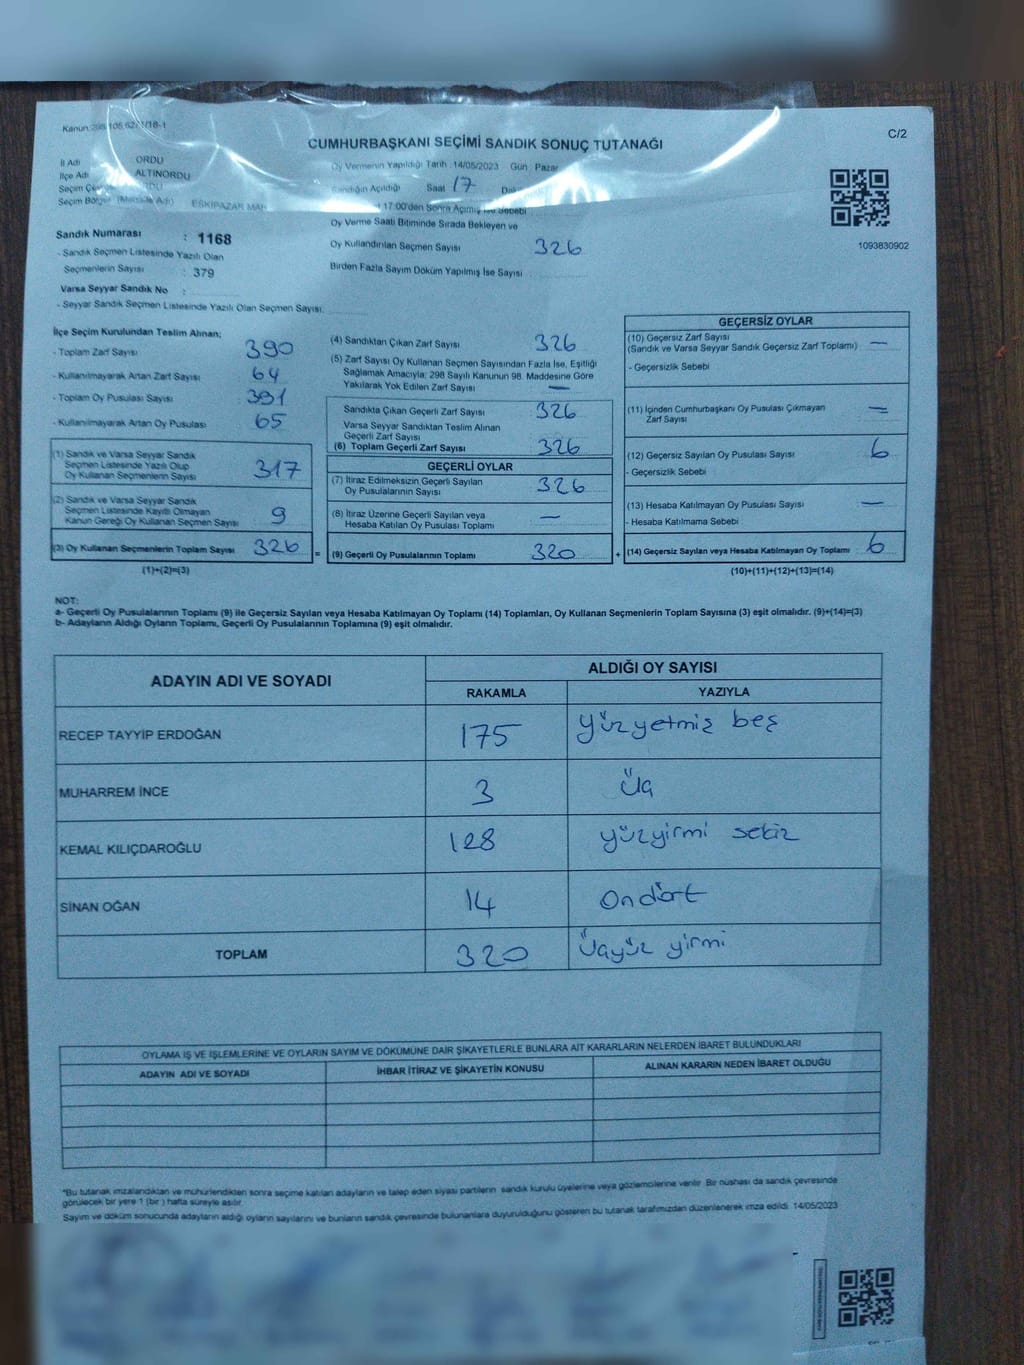 C/2
CUMHURBAŞKANI SEÇİMİ SANDIK SONUÇ TUTANAĞI
İl Adı ORDU
İlçe Adı ALTINORDU
Seçim
Seçim Bölgesi (Mahalle Adı) ESKİPAZAR MAH
Oy Vermenin Yapıldığı Tarih : 14/05/2023 Gün : Pazar
Sandığın Açıldığı Saat 17
17:00'den Sonra Açılmış İse Sebebi :
Sandık Numarası : 1168
- Sandık Seçmen Listesinde Yazılı Olan
Seçmenlerin Sayısı : 379
Varsa Seyyar Sandık No :
- Seyyar Sandık Seçmen Listesinde Yazılı Olan Seçmen Sayısı:
Oy Verme Saati Bitiminde Sırada Bekleyen ve
Oy Kullandırılan Seçmen Sayısı 326
Birden Fazla Sayım Döküm Yapılmış İse Sayısı :
1093830902
İlçe Seçim Kurulundan Teslim Alınan;
- Toplam Zarf Sayısı : 390
- Kullanılmayarak Artan Zarf Sayısı : 64
- Toplam Oy Pusulası Sayısı : 391
- Kullanılmayarak Artan Oy Pusulası : 65
(1) Sandık ve Varsa Seyyar Sandık
Seçmen Listesinde Yazılı Olup
Oy Kullanan Seçmenlerin Sayısı : 317
(2) Sandık ve Varsa Seyyar Sandık
Seçmen Listesinde Kayıtlı Olmayan
Kanun Gereği Oy Kullanan Seçmen Sayısı : 9
(3) Oy Kullanan Seçmenlerin Toplam Sayısı : 326 =
(1)+(2)=(3)
(4) Sandıktan Çıkan Zarf Sayısı : 326
(5) Zarf Sayısı Oy Kullanan Seçmen Sayısından Fazla İse, Eşitliği
Sağlamak Amacıyla; 298 Sayılı Kanunun 98. Maddesine Göre
Yakılarak Yok Edilen Zarf Sayısı : —
Sandıkta Çıkan Geçerli Zarf Sayısı : 326
Varsa Seyyar Sandıktan Teslim Alınan
Geçerli Zarf Sayısı
(6) Toplam Geçerli Zarf Sayısı : 326
GEÇERLİ OYLAR
(7) İtiraz Edilmeksizin Geçerli Sayılan
Oy Pusulalarının Sayısı : 326
(8) İtiraz Üzerine Geçerli Sayılan veya
Hesaba Katılan Oy Pusulası Toplamı : —
(9) Geçerli Oy Pusulalarının Toplamı : 320 +
GEÇERSİZ OYLAR
(10) Geçersiz Zarf Sayısı
(Sandık ve Varsa Seyyar Sandık Geçersiz Zarf Toplamı) : —
- Geçersizlik Sebebi
(11) İçinden Cumhurbaşkanı Oy Pusulası Çıkmayan
Zarf Sayısı : —
(12) Geçersiz Sayılan Oy Pusulası Sayısı : 6
- Geçersizlik Sebebi
(13) Hesaba Katılmayan Oy Pusulası Sayısı : —
- Hesaba Katılmama Sebebi
(14) Geçersiz Sayılan veya Hesaba Katılmayan Oy Toplamı : 6
(10)+(11)+(12)+(13)=(14)
NOT:
a- Geçerli Oy Pusulalarının Toplamı (9) ile Geçersiz Sayılan veya Hesaba Katılmayan Oy Toplamı (14) Toplamları, Oy Kullanan Seçmenlerin Toplam Sayısına (3) eşit olmalıdır. (9)+(14)=(3)
b- Adayların Aldığı Oyların Toplamı, Geçerli Oy Pusulalarının Toplamına (9) eşit olmalıdır.
ADAYIN ADI VE SOYADI ALDIĞI OY SAYISI
RAKAMLA YAZIYLA
RECEP TAYYİP ERDOĞAN 175 yüzyetmiş beş
MUHARREM İNCE 3 üç
KEMAL KILIÇDAROĞLU 128 yüzyirmi sekiz
SİNAN OĞAN 14 Ondört
TOPLAM 320 Üçyüz yirmi
OYLAMA İŞ VE İŞLEMLERİNE VE OYLARIN SAYIM VE DÖKÜMÜNE DAİR ŞİKAYETLERLE BUNLARA AİT KARARLARIN NELERDEN İBARET BULUNDUKLARI
ADAYIN ADI VE SOYADI İHBAR İTİRAZ VE ŞİKAYETİN KONUSU ALINAN KARARIN NEDEN İBARET OLDUĞU
*Bu tutanak imzalandıktan ve mühürlendikten sonra seçime katılan adayların ve talep eden siyasi partilerin sandık kurulu üyelerine veya gözlemcilerine verilir. Bir nüshası da sandık çevresinde
görülecek bir yere 1 (bir ) hafta süreyle asılır.
Sayım ve döküm sonucunda adayların aldığı oyların sayılarını ve bunların sandık çevresinde bulunanlara duyurulduğunu gösteren bu tutanak tarafımızdan düzenlenerek imza edildi. 14/05/2023